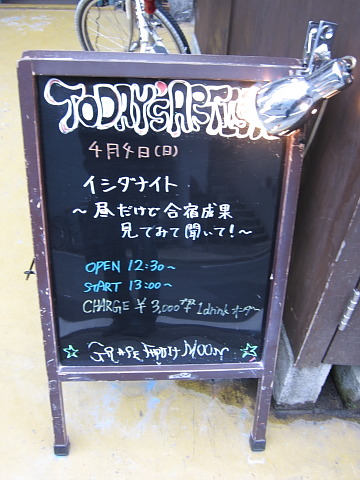 TODAY'S ARTIST
4月4日(日)
イシダナイト
〜昼だけど合宿成果
見てみて聞いて!〜
OPEN 12:30〜
START 13:00〜
CHARGE ¥3,000 + 1drinkオーダー
☆ GRAPEFRUIT MOON ☆